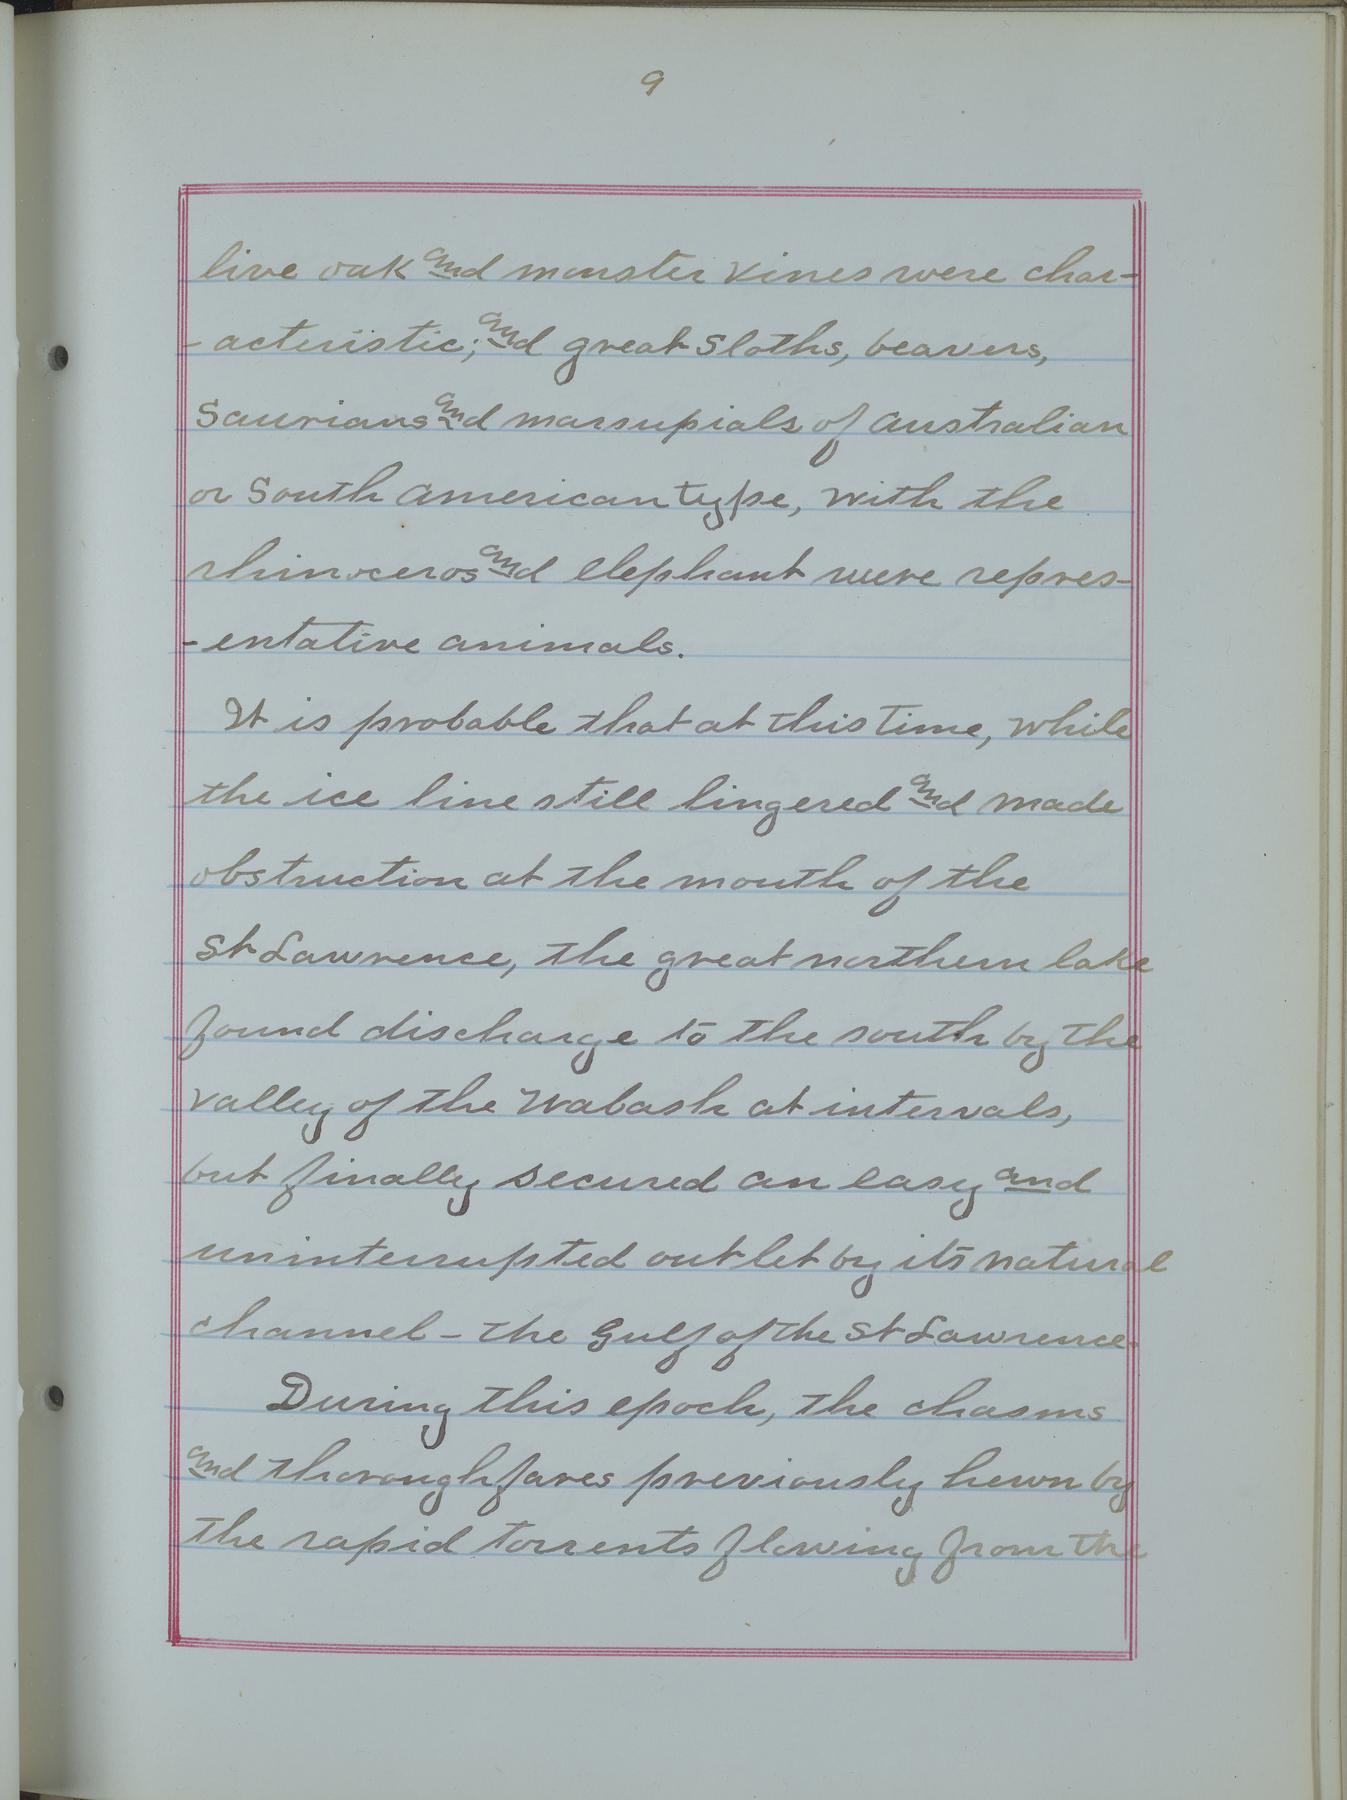 9
live oak and monster vines were char-
-acteristic; and great sloths, beavers,
Saurians and marsupials of Australian
or South American type, with the
rhinoceros and elephant were repres-
-entative animals.
It is probable that at this time, while
the ice line still lingered and made
obstruction at the mouth of the
St Lawrence, the great northern lake
found discharge to the south by the
valley of the Wabash at intervals,
but finally secured an easy and
uninterrupted outlet by its natural
channel - the Gulf of the St Lawrence.
During this epoch, the chasms
and thoroughfares previously hewn by
the rapid torrents flowing from the